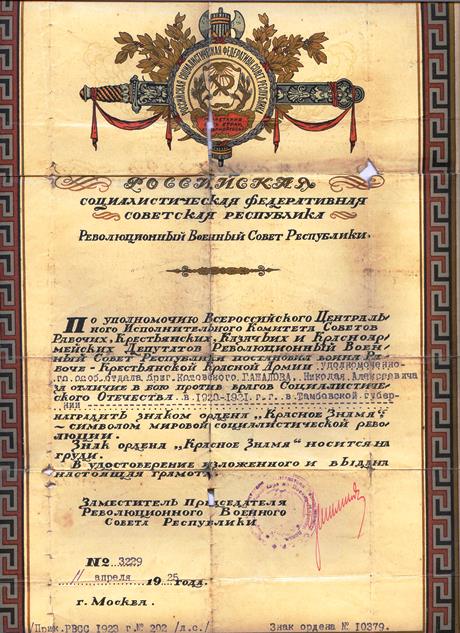 РОССИЙСКАЯ
СОЦИАЛИСТИЧЕСКАЯ ФЕДЕРАТИВНАЯ
СОВЕТСКАЯ РЕСПУБЛИКА
РЕВОЛЮЦИОННЫЙ ВОЕННЫЙ СОВЕТ РЕСПУБЛИКИ.
По уполномочию Всероссийского Централь-
ного Исполнительного Комитета Советов
Рабочих, Крестьянских, Казачьих и Красноар-
мейских Депутатов Революционный Воен-
ный Совет Республики постановил воина Ра-
боче-Крестьянской Красной Армии уполномоченно-
го особ.отдела бриг. Котовского ГАЖАЛОВА, Николая Алексеевича
за отличие в бою против врагов Социалистиче-
ского Отечества в 1920-1921 г.г. в Тамбовской губер-
нии
наградить знаком ордена „Красное Знамя“
~ символом мировой социалистической рево-
люции.
Знак ордена „Красное Знамя“ носится на
груди.
В удостоверение изложенного и выдана
настоящая грамота
Заместитель Председателя
Революционного Военного
Совета Республики
№ 3229
11 апреля 1925 года.
г. Москва.
/Прик.РВСС 1923 г.№ 202 /л.с./ Знак ордена № 10379.